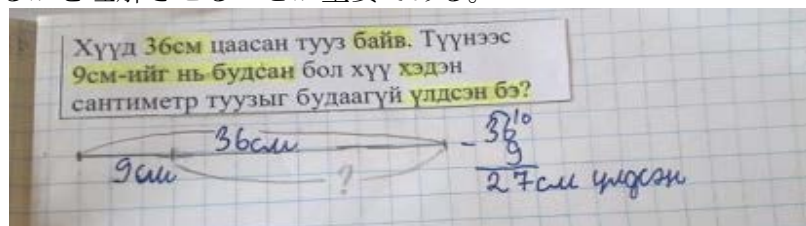 Хүүд 36см цаасан тууз байв. Түүнээс
9см-ийг нь будсан бол хүү хэдэн
сантиметр туузыг будаагүй үлдсэн бэ?
36см
9см
?
10
- 36
9
27см үлдсэн